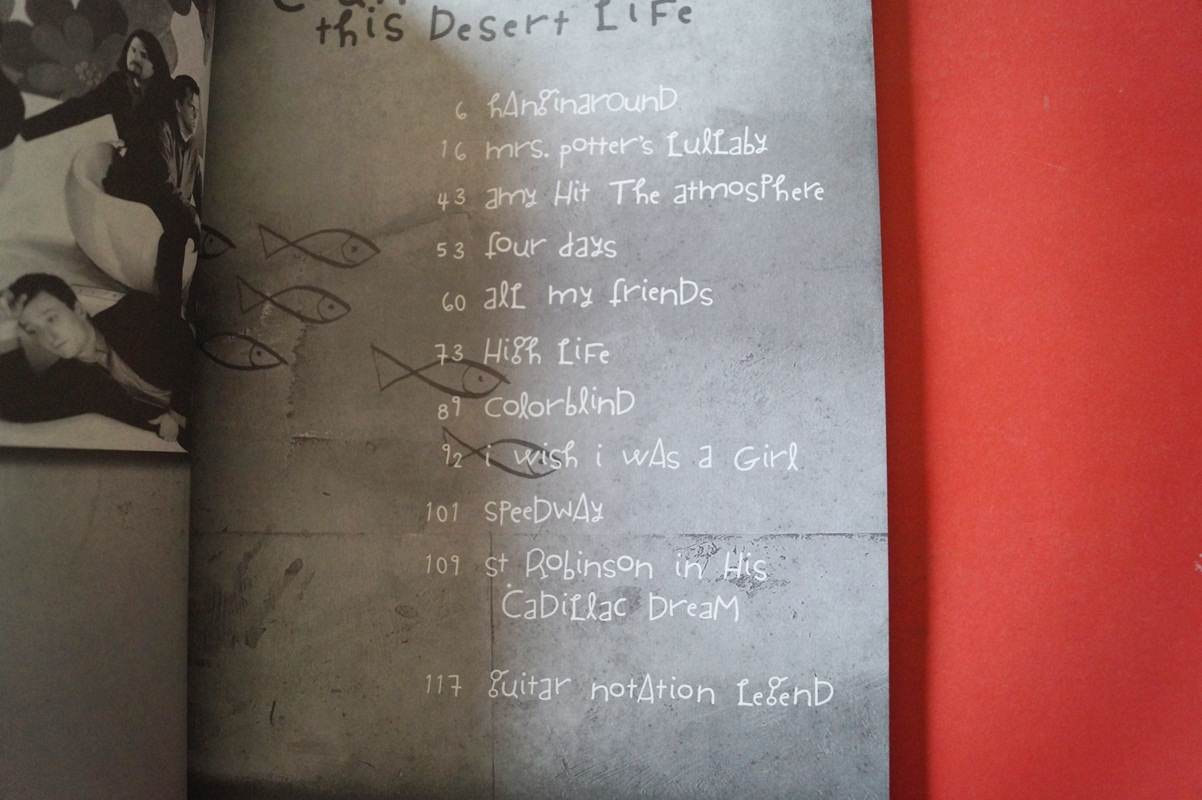 this Desert Life
6 hAnginarounD
16 mrs. potter's LulLaby
43 amy Hit The atmosPhere
53 four days
60 alL my frienDs
73 High LiFe
89 colorblinD
92 i wish i wAs a Girl
101 sPeeDwAy
109 st Robinson in His
CaDiLlac DreaM
117 guitar notAtion LegenD